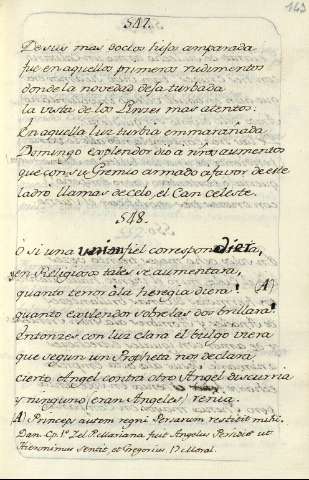 143
547.
De sus mas doctos hijos amparada
fue en aquellos primeros rudimentos
donde la novedad dexa turbada
la vista de los Linzes mas atentos.
En aquella luz turbia enmarañada
Domingo explendor dio a ntros, aumentos
que con su Gremio armado a favor de este
ladró llamas de celo, el Can Celeste.
548.
O si una union fiel correspondiera,
en Religiosos tales se aumentara,
quanto terror à la heregia diera! (A)
quanto explendor sobre las dos brillara!
Entonzes con luz clara el bulgo viera
que segun un Propheta nos declara,
cierto Angel contra otro Angel discurria
y ninguno, (eran Angeles) renia.
(A) Princeps autem regni Persarum restitit mihi.
Dan. Cp. 10 Zel. Mariana fuit Angelus Persidis ut
Hieronimus sentit, et Gregorius 17 Moral.